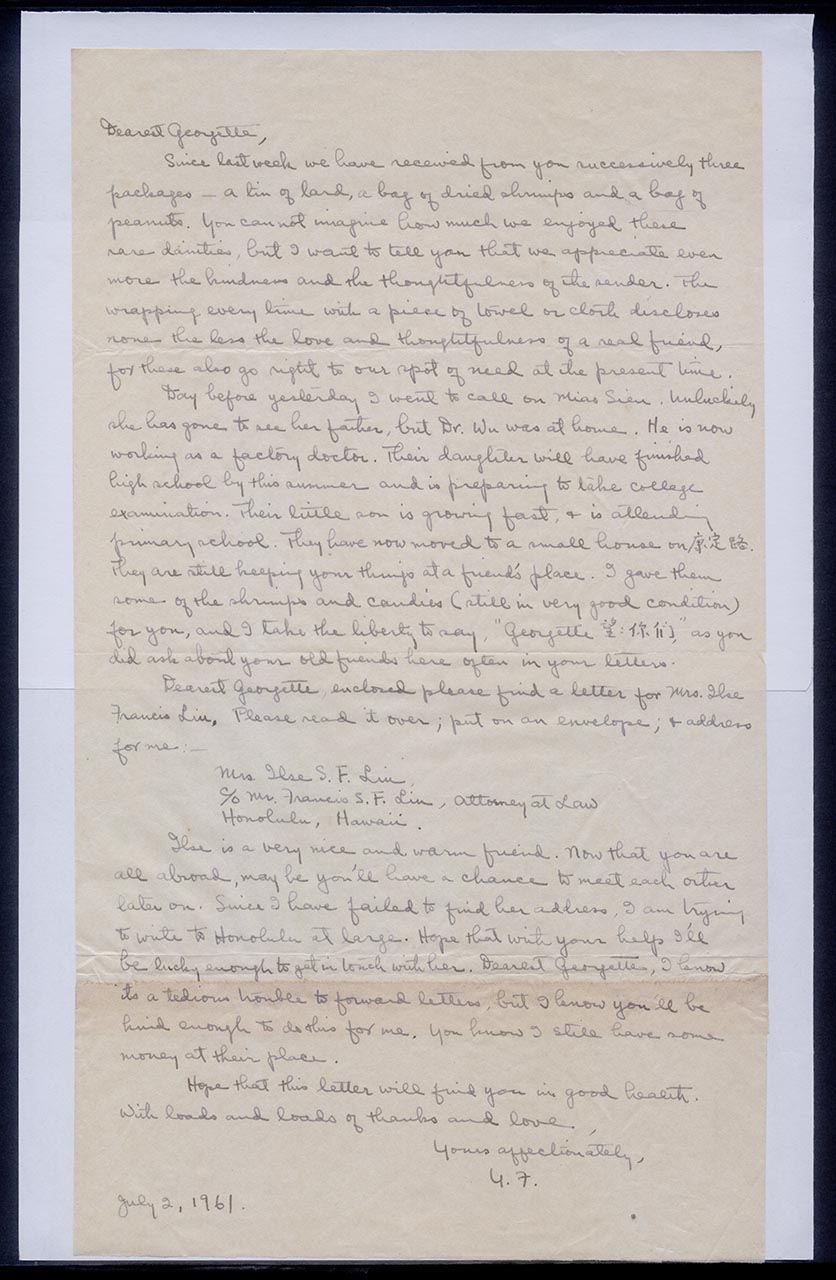 Dearest Georgette,
Since last week we have received from you successively three
packages — a tin of lard, a bag of dried shrimps and a bag of
peanuts. You cannot imagine how much we enjoyed these
rare dainties, but I want to tell you that we appreciate even
more the kindness and the thoughtfulness of the sender. The
wrapping every time with a piece of towel or cloth discloses
none the less the love and thoughtfulness of a real friend,
for these also go right to our spot of need at the present time.
Day before yesterday I went to call on Miao Sien. Unluckily
she has gone to see her father, but Dr. Wu was at home. He is now
working as a factory doctor. Their daughter will have finished
high school by this summer and is preparing to take college
examination. Their little son is growing fast, & is attending
primary school. They have now moved to a small house on 康定路.
They are still keeping your things at a friend's place. I gave them
some of the shrimps and candies (still in very good condition)
for you, and I take the liberty to say, "Georgette 望:你们," as you
did ask about your old friends here often in your letters.
Dearest Georgette, enclosed please find a letter for Mrs. Ilse
Francis Liu. Please read it over; put on an envelope; & address
for me:—
Mrs. Ilse S. F. Liu,
c/o Mr. Francis S. F. Liu, Attorney at Law
Honolulu, Hawaii.
Ilse is a very nice and warm friend. Now that you are
all abroad, may be you'll have a chance to meet each other
later on. Since I have failed to find her address, I am trying
to write to Honolulu at large. Hope that with your help I'll
be lucky enough to get in touch with her. Dearest Georgette, I know
its a tedious trouble to forward letters, but I know you'll be
kind enough to do this for me. You know I still have some
money at their place.
Hope that this letter will find you in good health.
With loads and loads of thanks and love.
Yours affectionately,
Y. F.
July 2, 1961.